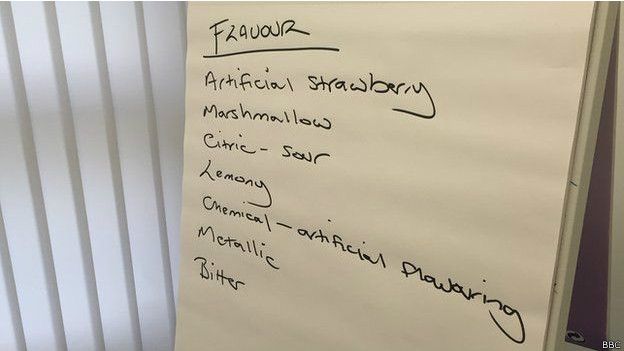 FLAVOUR
Artificial strawberry
Marshmallow
Citric - sour
Lemony
Chemical - artificial flavouring
Metallic
Bitter
BBC